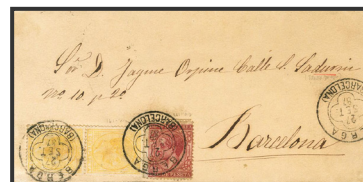 Sr. D. Jayme Orpine Calle S. Sadurní
Nº 10. p. 2º
Barcelona
BERGA
(BARCELONA)
BERGA
(BARCELONA)
BERGA
(BARCELONA)